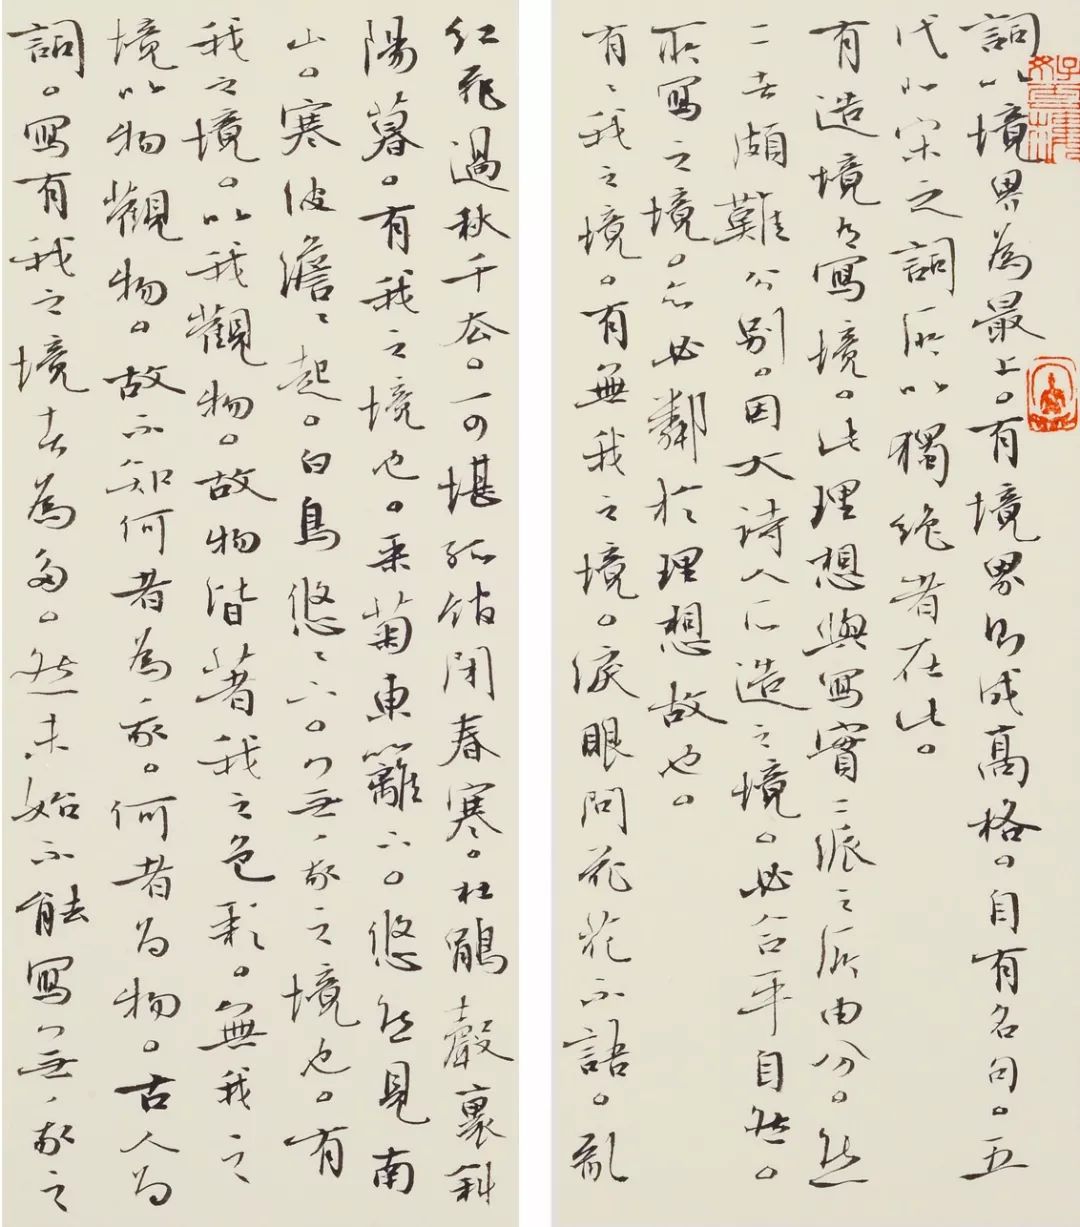 詞以境界為最上。有境界則成高格。自有名句。五
代北宋之詞所以獨絕者在此。
有造境有寫境。此理想與寫實二派之所由分。然
二者頗難分別。因大詩人所造之境。必合乎自然。
所寫之境。亦必鄰於理想故也。
有有我之境。有無我之境。淚眼問花花不語。亂
紅飛過秋千去。可堪孤館閉春寒。杜鵑聲裏斜
陽暮。有我之境也。采菊東籬下。悠然見南
山。寒波澹澹起。白鳥悠悠下。無我之境也。有
我之境。以我觀物。故物皆著我之色彩。無我之
境以物觀物。故不知何者為我。何者為物。古人為
詞。寫有我之境者為多。然未始不能寫無我之